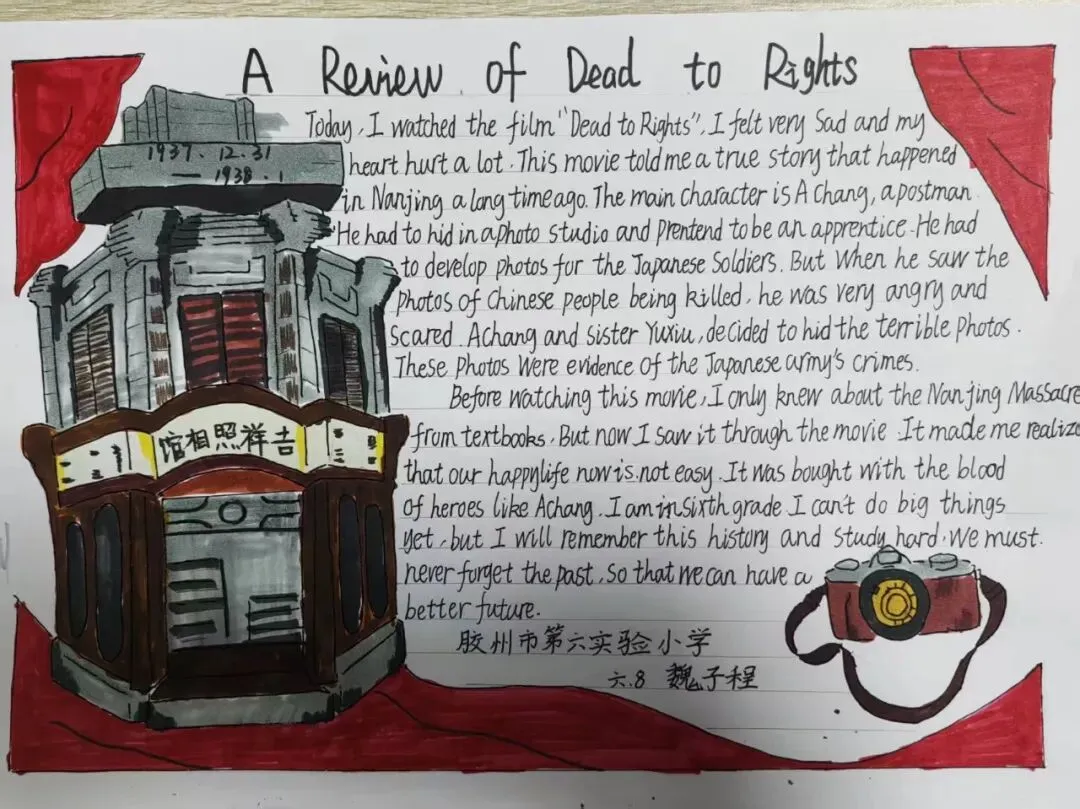 A Review of Dead to Rights
1937.12.31
— 1938.1
吉祥照相馆
Today, I watched the film "Dead to Rights", I felt very Sad and my
heart hurt a lot. This movie told me a true story that happened
in Nanjing a long time ago. The main character is A Chang, a postman.
He had to hid in a photo studio and Prentend to be an apprentice. He had
to develop photos for the Japanese Soldiers. But When he saw the
Photos of Chinese people being killed, he was very angry and
scared. Achang and sister Yuxiu, decided to hid the terrible Photos.
These Photos Were evidence of the Japanese army's crimes.
Before watching this movie, I only knew about the Nanjing Massacre
from textbooks. But now I saw it through the movie. It made me realize
that our happy life now is not easy. It was bought with the blood
of heroes like Achang. I am in sixth grade I can't do big things
yet, but I will remember this history and study hard. We must
never forget the past, so that we can have a
better future.
胶州市第六实验小学
六.8 魏子程